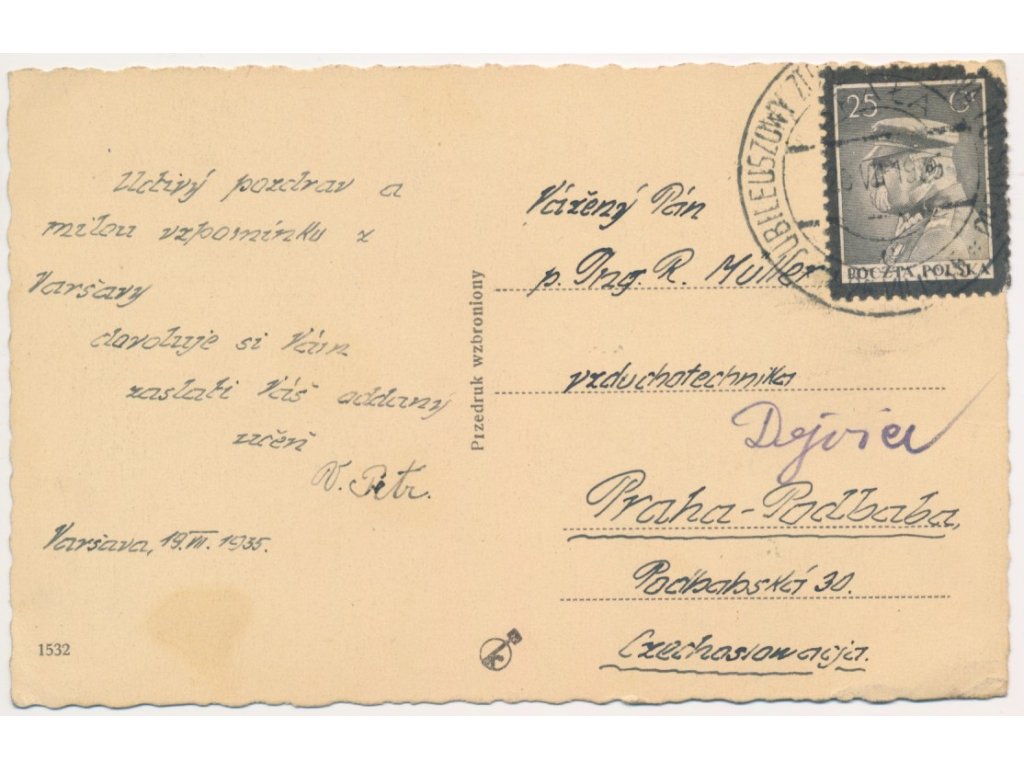 Uctivý pozdrav a
milou vzpomínku z
Varšavy
dovoluje si Vám
zaslati Váš oddaný
učeň
V. Petr.
Varšava, 19.VII. 1935.
1532
Przedruk wzbroniony
JUBILEUSZOWY
VII 1935
25 Gr
POCZTA POLSKA
Vážený Pán
p. Ing. R. Müller
vzduchotechnika
Dejvice
Praha-Podbaba,
Podbabská 30.
Czechoslowacja.